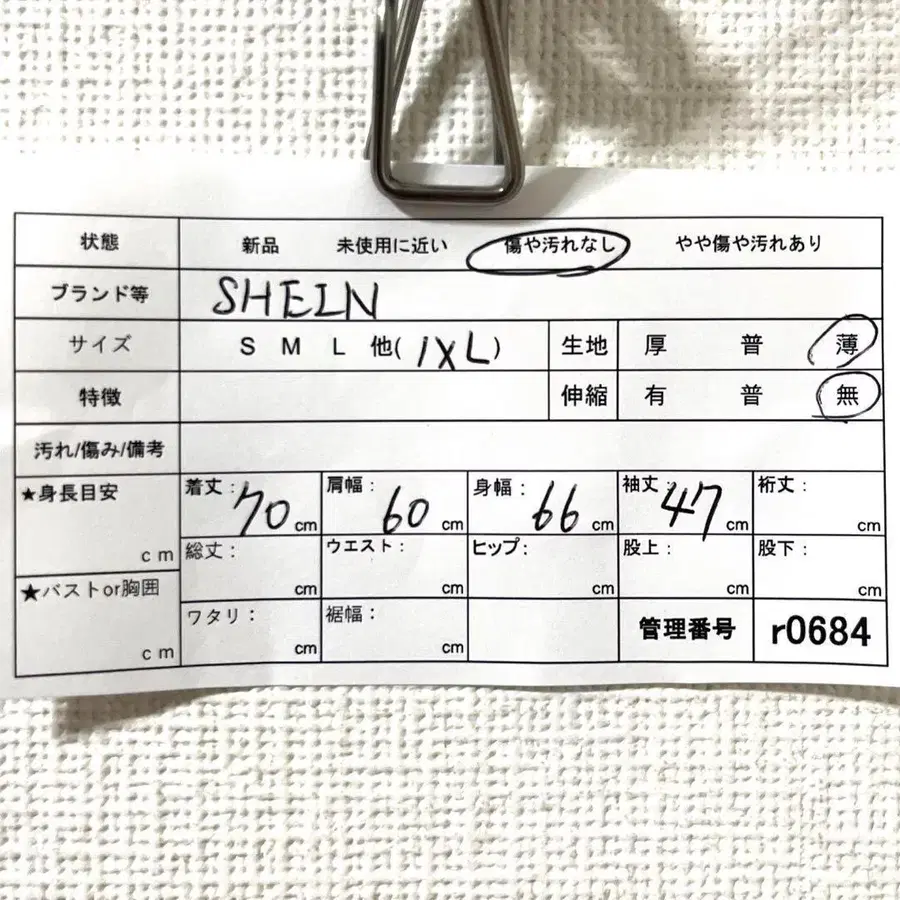 状態 新品 未使用に近い 傷や汚れなし やや傷や汚れあり
ブランド等 SHEIN
サイズ S M L 他(1XL) 生地 厚 普 薄
特徴 伸縮 有 普 無
汚れ/傷み/備考
★身長目安 cm 着丈: 70 cm 肩幅: 60 cm 身幅: 66 cm 袖丈: 47 cm 裄丈: cm
総丈: cm ウエスト: cm ヒップ: cm 股上: cm 股下: cm
★バストor胸囲 cm ワタリ: cm 裾幅: cm 管理番号 r0684